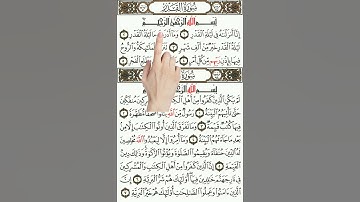 سُورَةُ القَدْرِ
بِسْمِ اللَّهِ الرَّحْمَٰنِ الرَّحِيمِ
إِنَّا أَنزَلْنَٰهُ فِي لَيْلَةِ ٱلْقَدْرِ ۝ وَمَآ أَدْرَىٰكَ مَا لَيْلَةُ ٱلْقَدْرِ ۝
لَيْلَةُ ٱلْقَدْرِ خَيْرٌ مِّنْ أَلْفِ شَهْرٍ ۝ ٱلْمَلَٰٓئِكَةُ وَٱلرُّوحُ
فِيهَا بِإِذْنِ رَبِّهِم مِّن كُلِّ أَمْرٍ ۝ حَتَّىٰ مَطْلَعِ ٱلْفَجْرِ ۝
بِسْمِ اللَّهِ الرَّحْمَٰنِ الرَّحِيمِ
لَمْ يَكُنِ ٱلَّذِينَ كَفَرُوا۟ مِنْ أَهْلِ ٱلْكِتَٰبِ وَٱلْمُشْرِكِينَ مُنفَكِّينَ
حَتَّىٰ تَأْتِيَهُمُ ٱلْبَيِّنَةُ ۝ رَسُولٌ مِّنَ ٱللَّهِ يَتْلُوا۟ صُحُفًا مُّطَهَّرَةً ۝
فِيهَا كُتُبٌ قَيِّمَةٌ ۝ وَمَا تَفَرَّقَ ٱلَّذِينَ أُوتُوا۟ ٱلْكِتَٰبَ إِلَّا مِنۢ
بَعْدِ مَا جَآءَتْهُمُ ٱلْبَيِّنَةُ ۝ وَمَآ أُمِرُوٓا۟ إِلَّا لِيَعْبُدُوا۟ ٱللَّهَ مُخْلِصِينَ
لَهُ ٱلدِّينَ حُنَفَآءَ وَيُقِيمُوا۟ ٱلصَّلَوٰةَ وَيُؤْتُوا۟ ٱلزَّكَوٰةَ وَذَٰلِكَ دِينُ
ٱلْقَيِّمَةِ ۝ إِنَّ ٱلَّذِينَ كَفَرُوا۟ مِنْ أَهْلِ ٱلْكِتَٰبِ وَٱلْمُشْرِكِينَ
فِي نَارِ جَهَنَّمَ خَٰلِدِينَ فِيهَآ أُو۟لَٰٓئِكَ هُمْ شَرُّ ٱلْبَرِيَّةِ ۝ إِنَّ
ٱلَّذِينَ ءَامَنُوا۟ وَعَمِلُوا۟ ٱلصَّٰلِحَٰتِ أُو۟لَٰٓئِكَ هُمْ خَيْرُ ٱلْبَرِيَّةِ ۝